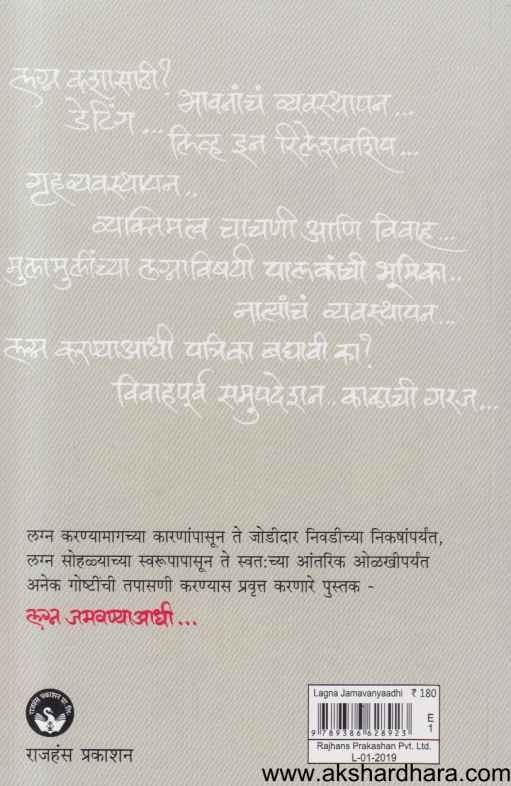 लग्न कशासाठी?
भावनांचं व्यवस्थापन...
डेटिंग...
लिव्ह इन रिलेशनशिप...
गृहव्यवस्थापन..
व्यक्तिमत्व चाचणी आणि विवाह...
मुलामुलींच्या लग्नाविषयी पालकांची भूमिका..
नात्यांचं व्यवस्थापन...
लग्न करण्याआधी पत्रिका बघावी का?
विवाहपूर्व समुपदेशन.. काळाची गरज...
लग्न करण्यामागच्या कारणांपासून ते जोडीदार निवडीच्या निकषांपर्यंत,
लग्न सोहळ्याच्या स्वरूपापासून ते स्वत:च्या आंतरिक ओळखीपर्यंत
अनेक गोष्टींची तपासणी करण्यास प्रवृत्त करणारे पुस्तक -
लग्न जमवण्याआधी...
राजहंस प्रकाशन प्रा. लि.
राजहंस प्रकाशन
Lagna Jamavanyaadhi ₹ 180
E
1
9 789386 628923
Rajhans Prakashan Pvt. Ltd.
L-01-2019
www.akshardhara.com